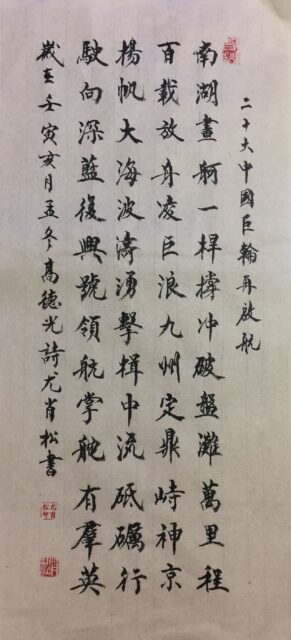 二十大中國巨輪再啟航
南湖畫舸一桿撐冲破盤灘萬里程
百載放舟凌巨浪九州定鼎峙神京
揚帆大海波濤湧擊楫中流砥礪行
駛向深藍復興號領航掌舵有羣英
歲在壬寅亥月孟冬高德光詩尤肖松書